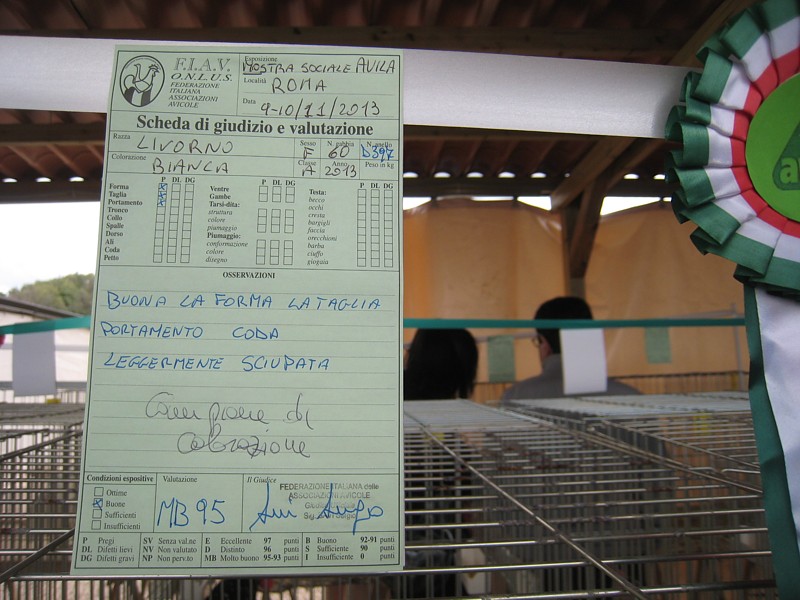 F.I.A.V.
O.N.L.U.S.
FEDERAZIONE
ITALIANA
ASSOCIAZIONI
AVICOLE
Esposizione MOSTRA SOCIALE AVILA
Località ROMA
Data 9-10/11/2013
Scheda di giudizio e valutazione
Razza LIVORNO
Sesso F N. gabbia 60 N. anello D397
Colorazione BIANCA
Classe A Anno 2013 Peso in kg
P DL DG P DL DG P DL DG
Forma X
Taglia X
Portamento X
Tronco
Collo
Spalle
Dorso
Ali
Coda
Petto
Ventre
Gambe
Tarsi-dita:
struttura
colore
piumaggio
Piumaggio:
conformazione
colore
disegno
Testa:
becco
occhi
cresta
bargigli
faccia
orecchioni
barba
ciuffo
giogaia
OSSERVAZIONI
BUONA LA FORMA LA TAGLIA
PORTAMENTO CODA
LEGGERMENTE SCIUPATA
Campione di
colorazione
Condizioni espositive
Ottime
X Buone
Sufficienti
Insufficienti
Valutazione
MB 95
Il Giudice
FEDERAZIONE ITALIANA delle
ASSOCIAZIONI AVICOLE
P Pregi
DL Difetti lievi
DG Difetti gravi
SV Senza val.ne
NV Non valutato
NP Non perv.to
E Eccellente 97 punti
D Distinto 96 punti
MB Molto buono 95-93 punti
B Buono 92-91 punti
S Sufficiente 90 punti
I Insufficiente 0 punti